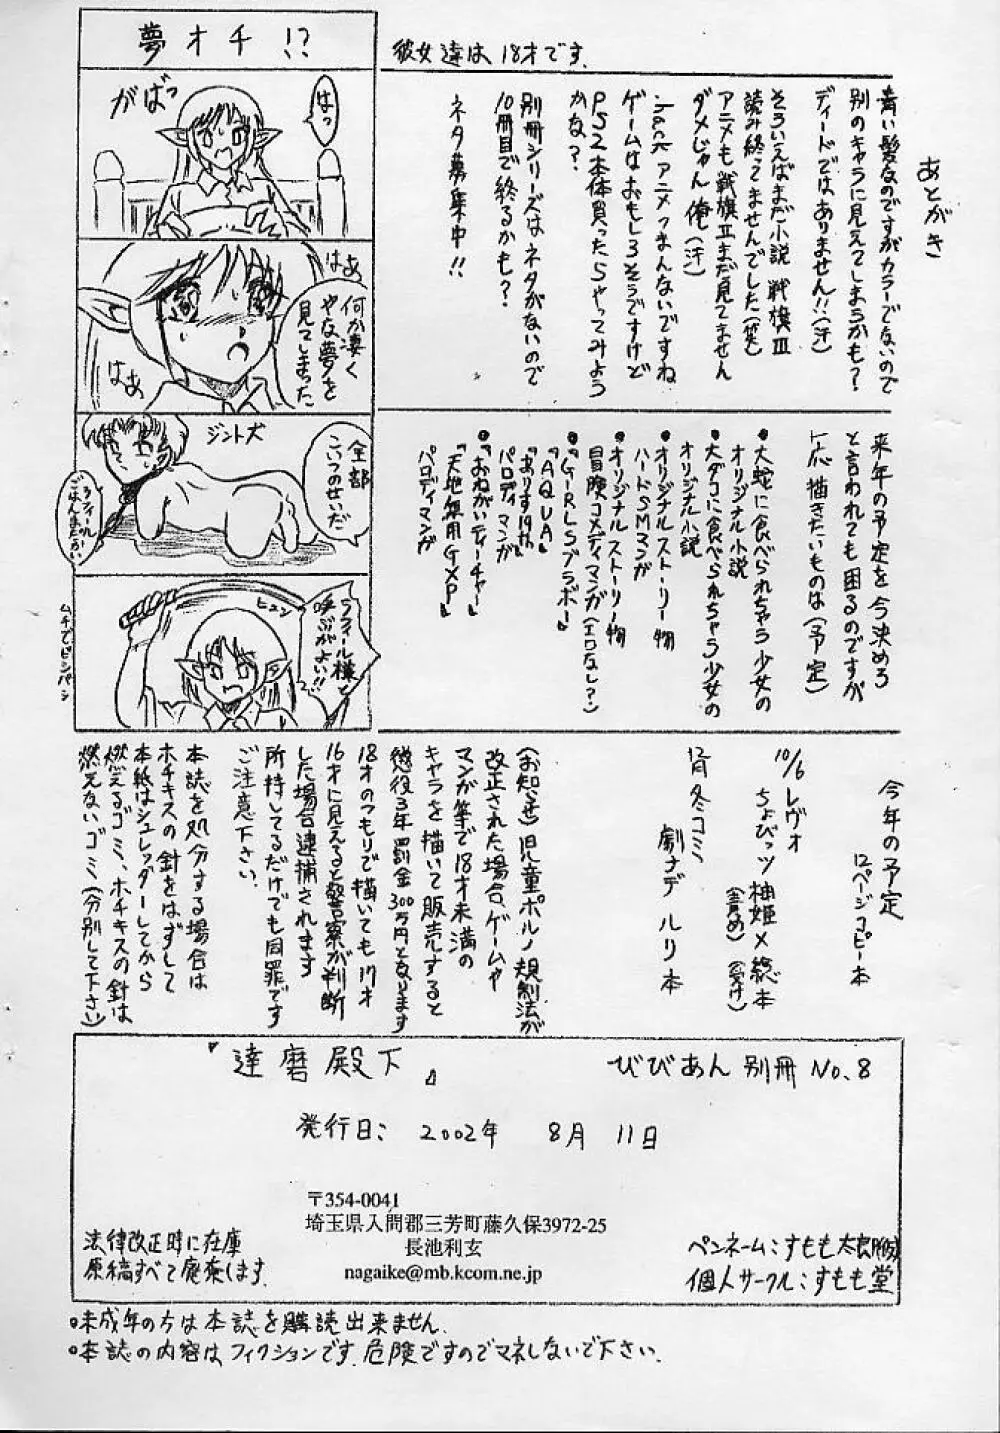 夢オチ!?
がばっ
はっ
はぁ
何か凄く
やな夢を
見てしまった
はぁ
ジント犬
全部
こいつのせいだ
ラフィール
ごはんまだかい
ヒュン
ラフィール様と
呼ぶがよい!!
ムチでビシバシ
彼女達は、18才です。
あとがき
青い髪なのですがカラーでないので
別のキャラに見えてしまうかも?
ディードではありません!!(汗)
そういえばまだ小説 戦旗III
読み終ってませんでした(笑)
アニメも戦旗IIまだ見てません
ダメじゃん俺(汗)
.hack アニメつまんないですね
ゲームはおもしろそうですけど
PS2本体買ったらやってみよう
かな?
別冊シリーズはネタがないので
10冊目で終るかも?
ネタ募集中!!
来年の予定を今決めろ
と言われても困るのですが
一応描きたいものは(予定)
●大蛇に食べられちゃう少女の
オリジナル小説
●大ダコに食べられちゃう少女の
オリジナル小説
●オリジナルストーリー物
ハードSMマンガ
●オリジナルストーリー物
冒険コメディマンガ(エロなし?)
●『G-RLSブラボー』
『AQUA』
『ありす19th』
パロディマンガ
●『おねがいティーチャー』
『天地無用GXP』
パロディマンガ
今年の予定
12ページコピー本
10/6 レヴォ
ちょびっツ 柚姫×総本
(責め)(受け)
12月 冬コミ
劇ナデ ルリ本
(お知らせ)児童ポルノ規制法が
改正された場合、ゲームや
マンガ等で18才未満の
キャラを描いて販売すると
懲役3年罰金300万円となります
18才のつもりで描いても17才
16才に見えると警察が判断
した場合逮捕されます
所持してるだけでも同罪です
ご注意下さい。
本誌を処分する場合は
ホチキスの針をはずして
本紙はシュレッダーしてから
燃えるゴミ、ホチキスの針は
燃えないゴミ(分別して下さい)
『達磨殿下』
びびあん別冊 No.8
発行日: 2002年 8月 11日
〒354-0041
埼玉県入間郡三芳町藤久保3972-25
長池利玄
nagaike@mb.kcom.ne.jp
法律改正時に在庫
原稿すべて廃棄します
ペンネーム:すもも太郎(仮)
個人サークル:すもも堂
●未成年の方は本誌を購読出来ません。
●本誌の内容は、フィクションです。危険ですのでマネしないで下さい。